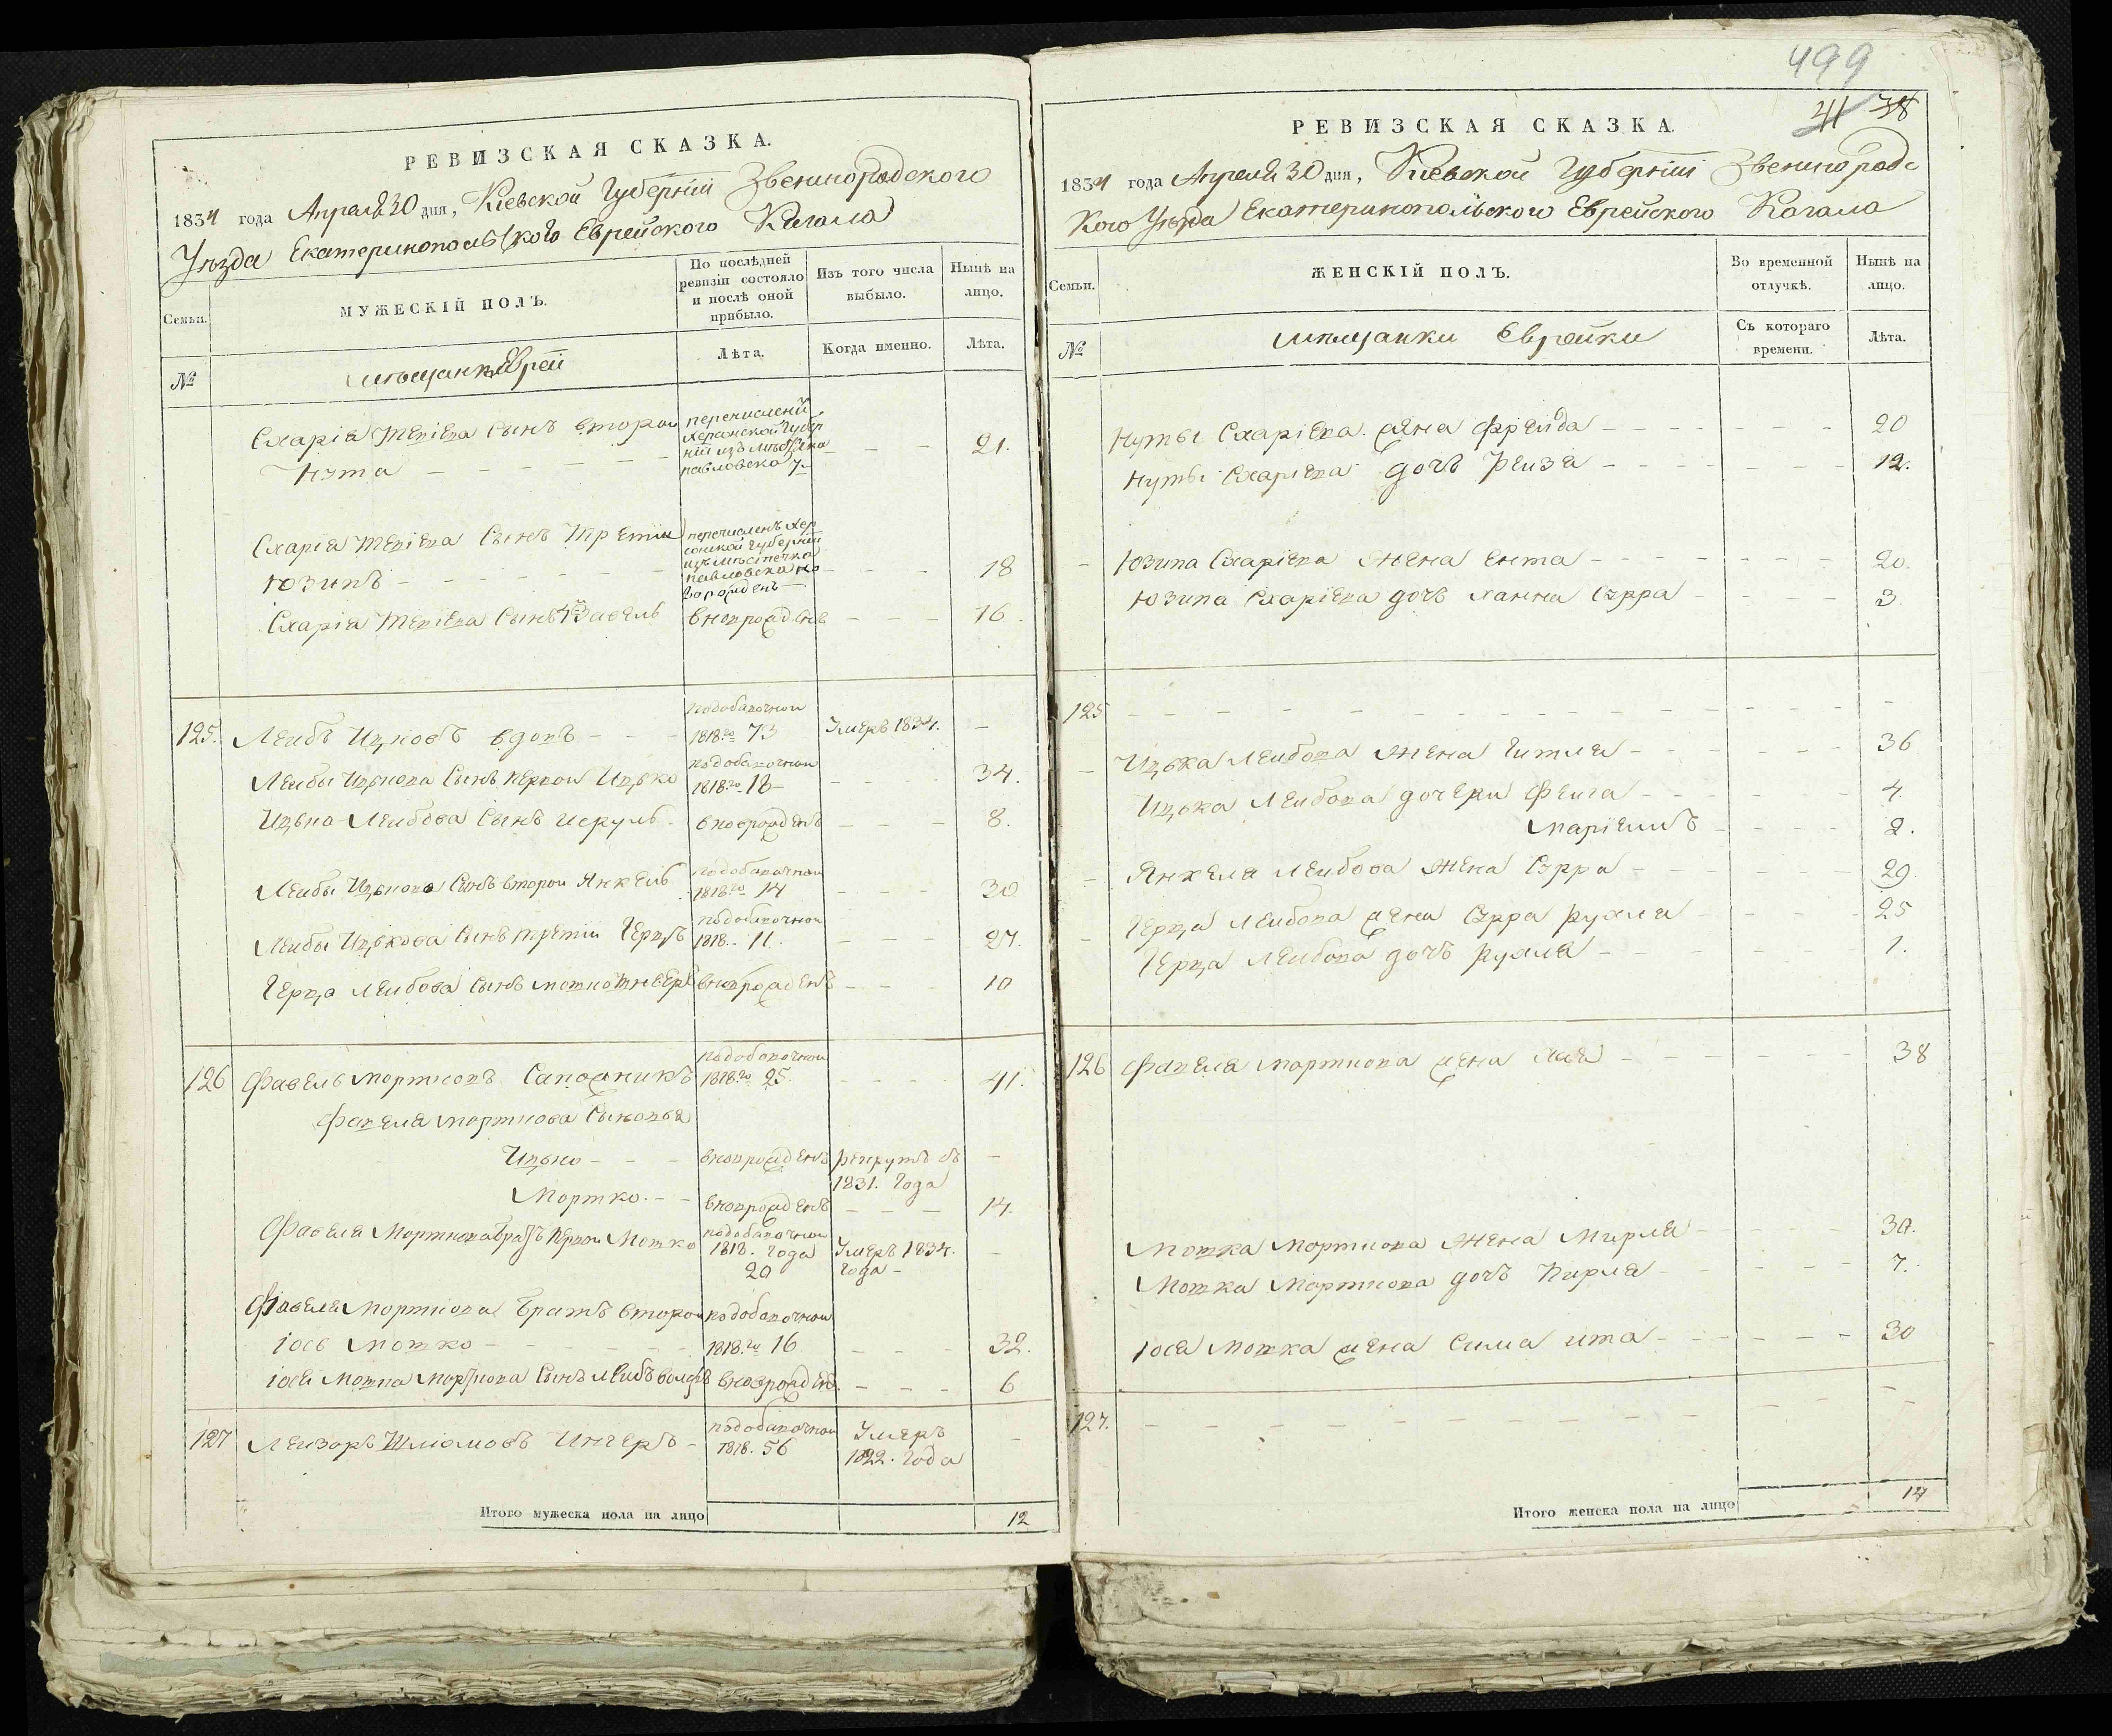 РЕВИЗСКАЯ СКАЗКА.
1834 года Апреля 30 дня, Киевской Губерніи Звенигородского
Уѣзда Екатеринопольского Еврейского Кагала
Семьи.
МУЖЕСКІЙ ПОЛЪ.
По послѣдней ревизіи состояло и послѣ оной прибыло.
Изъ того числа выбыло.
Нынѣ на лицо.
№
мѣщане Евреи
Лѣта.
Когда именно.
Лѣта.
Схарія Сынъ второи перечислени
Херсонской Губер
ніи изъ
Нута — павловска 7 — — — 21.
Схарія Сынъ Третіи перечисленъ Хер
сонской Губерніи
изъ мѣстечка
павловска но
Юзипъ — ворожденъ — — — 18
Схарія Сынъ 4й вновророжденъ — — — 16.
125. Лейбъ Ицковъ вдовъ — — подобавочной
1818го 73 Умеръ 1834. —
Лейбы Ицькова Сынъ первои Ицько подобавочнои
1818го 18 — — — — 34.
Ицька Лейбова Сынъ вноврожденъ — — — 8.
Лейбы Ицькова Сынъ второи Янкель подобавочнои
1818го 14 — — — 30
Лейбы Ицькова Сынъ третіи Герцъ подобавочнои
1818. 11. — — — 27.
Герца Лейбова Сынъ вноврожденъ — — — 10
126 Фавель Мортковъ Сапожникъ подобавочнои
1818го 25. — — — 41.
Фавеля Морткова Сыновья
Ицько — — — вноврожденъ рекрутъ съ
1831. Года —
Мортко. — — вноврожденъ — — — 14.
Фавеля Морткова братъ первои Мошко подобавочнои
1818. Года Умеръ 1834.
20 Года — —
Фавеля Морткова братъ второи подобавочнои
Іось Мошко — — — 1818го 16 — — — 32.
Іося Мошка Морткова Сынъ Лейбъ вноврожденъ — — — 6
127 Лейзоръ Шліомовъ — подобавочнои
1818. 56 Умеръ
1822. Года —
Итого мужеска пола на лицо 12
499
41 38
РЕВИЗСКАЯ СКАЗКА.
1834 года Апреля 30 дня, Киевской Губерніи Звенигородс
кого Уѣзда Екатеринопольского Еврейского Кагала
Семьи.
ЖЕНСКІЙ ПОЛЪ.
Во временной отлучкѣ.
Нынѣ на лицо.
№
мѣщанки Еврейки
Съ котораго времени.
Лѣта.
Нуты Схаріева жена Фрейда — — — 20
Нуты Схаріева дочъ Реиза — — — 12.
— Юзипа Схаріева жена Ента — — — 20.
Юзипа Схаріева дочъ Ханна Сурра — — — 3.
125 — — — —
— Ицька Лейбова жена Гитля — — — 36
Ицька Лейбова дочери Фейга — — — 4.
Маріемъ — — — 2.
— Янкеля Лейбова жена Сурра — — — 29.
— Герца Лейбова жена Сурра Рухля — — — 25
Герца Лейбова дочъ Рухля — — — 1.
126 Фавеля Морткова жена — — — 38
Мошка Морткова жена Мирля — — — 30.
Мошка Морткова дочъ Пирля — — — 7.
Іося Мошка жена Сима Ита — — — 30
127. — — — —
Итого женска пола на лицо 14